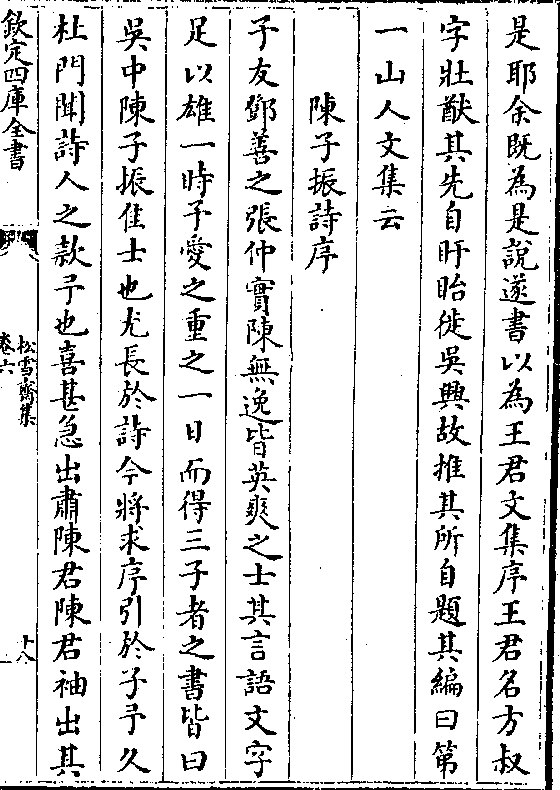 是耶余既為是說遂書以為王君文集序王君名方叔
字壯猷其先自盱眙徙吳興故推其所自題其編曰第
一山人文集云
陳子振詩序
子友鄧善之張仲實陳無逸皆英爽之士其言語文字
足以雄一時予愛之重之一日而得三子者之書皆曰
吳中陳子振佳士也尤長於詩今將求序引於子予久
杜門聞詩人之款予也喜甚急出肅陳君陳君袖出其
欽定四庫全書
松雪齋集
卷六
十八